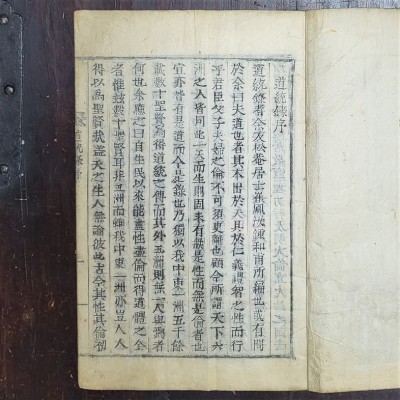 道統錄序
道統錄者余友松菴居士張鳳和甫所編也或有問
於余曰夫道也者其本出於天具於仁義禮智之性而行
乎君臣父子夫婦之倫不可須臾離也今所謂天下六
洲之人皆同此一天而生則固未有無是性而無是倫者也
宜亦皆有是道而今是錄也乃獨以我中東一洲五千餘
載數十聖賢為得道統之傳而其外五洲則無一人與焉者
何也余應之曰自生民以來能盡性盡倫而得道體之全
者惟玆數十聖賢耳非五洲而雖我中東一洲亦豈人人
得以為聖賢哉蓋天之生人無論彼此古今其性其倫初
道統錄序